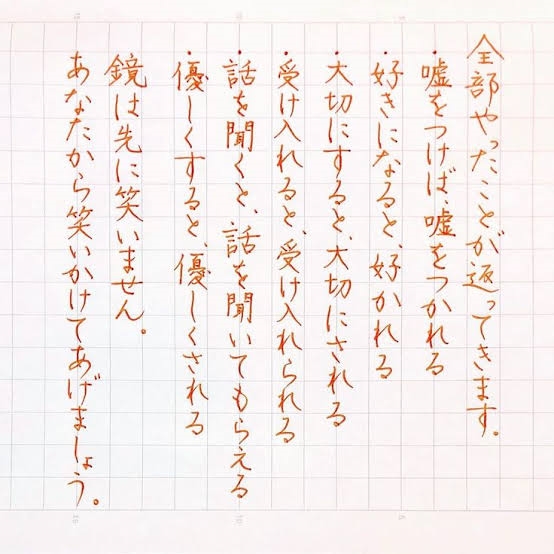 全部やったことが返ってきます。
・嘘をつけば、嘘をつかれる
・好きになると、好かれる
・大切にすると、大切にされる
・受け入れると、受け入れられる
・話を聞くと、話を聞いてもらえる
・優しくすると、優しくされる
鏡は先に笑いません。
あなたから笑いかけてあげましょう。